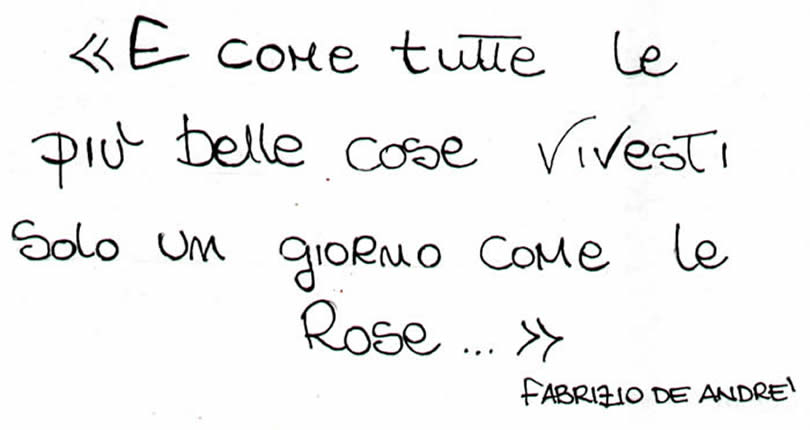 «E come tutte le
più belle cose vivesti
solo un giorno come le
Rose... »
FABRIZIO DE ANDRE'